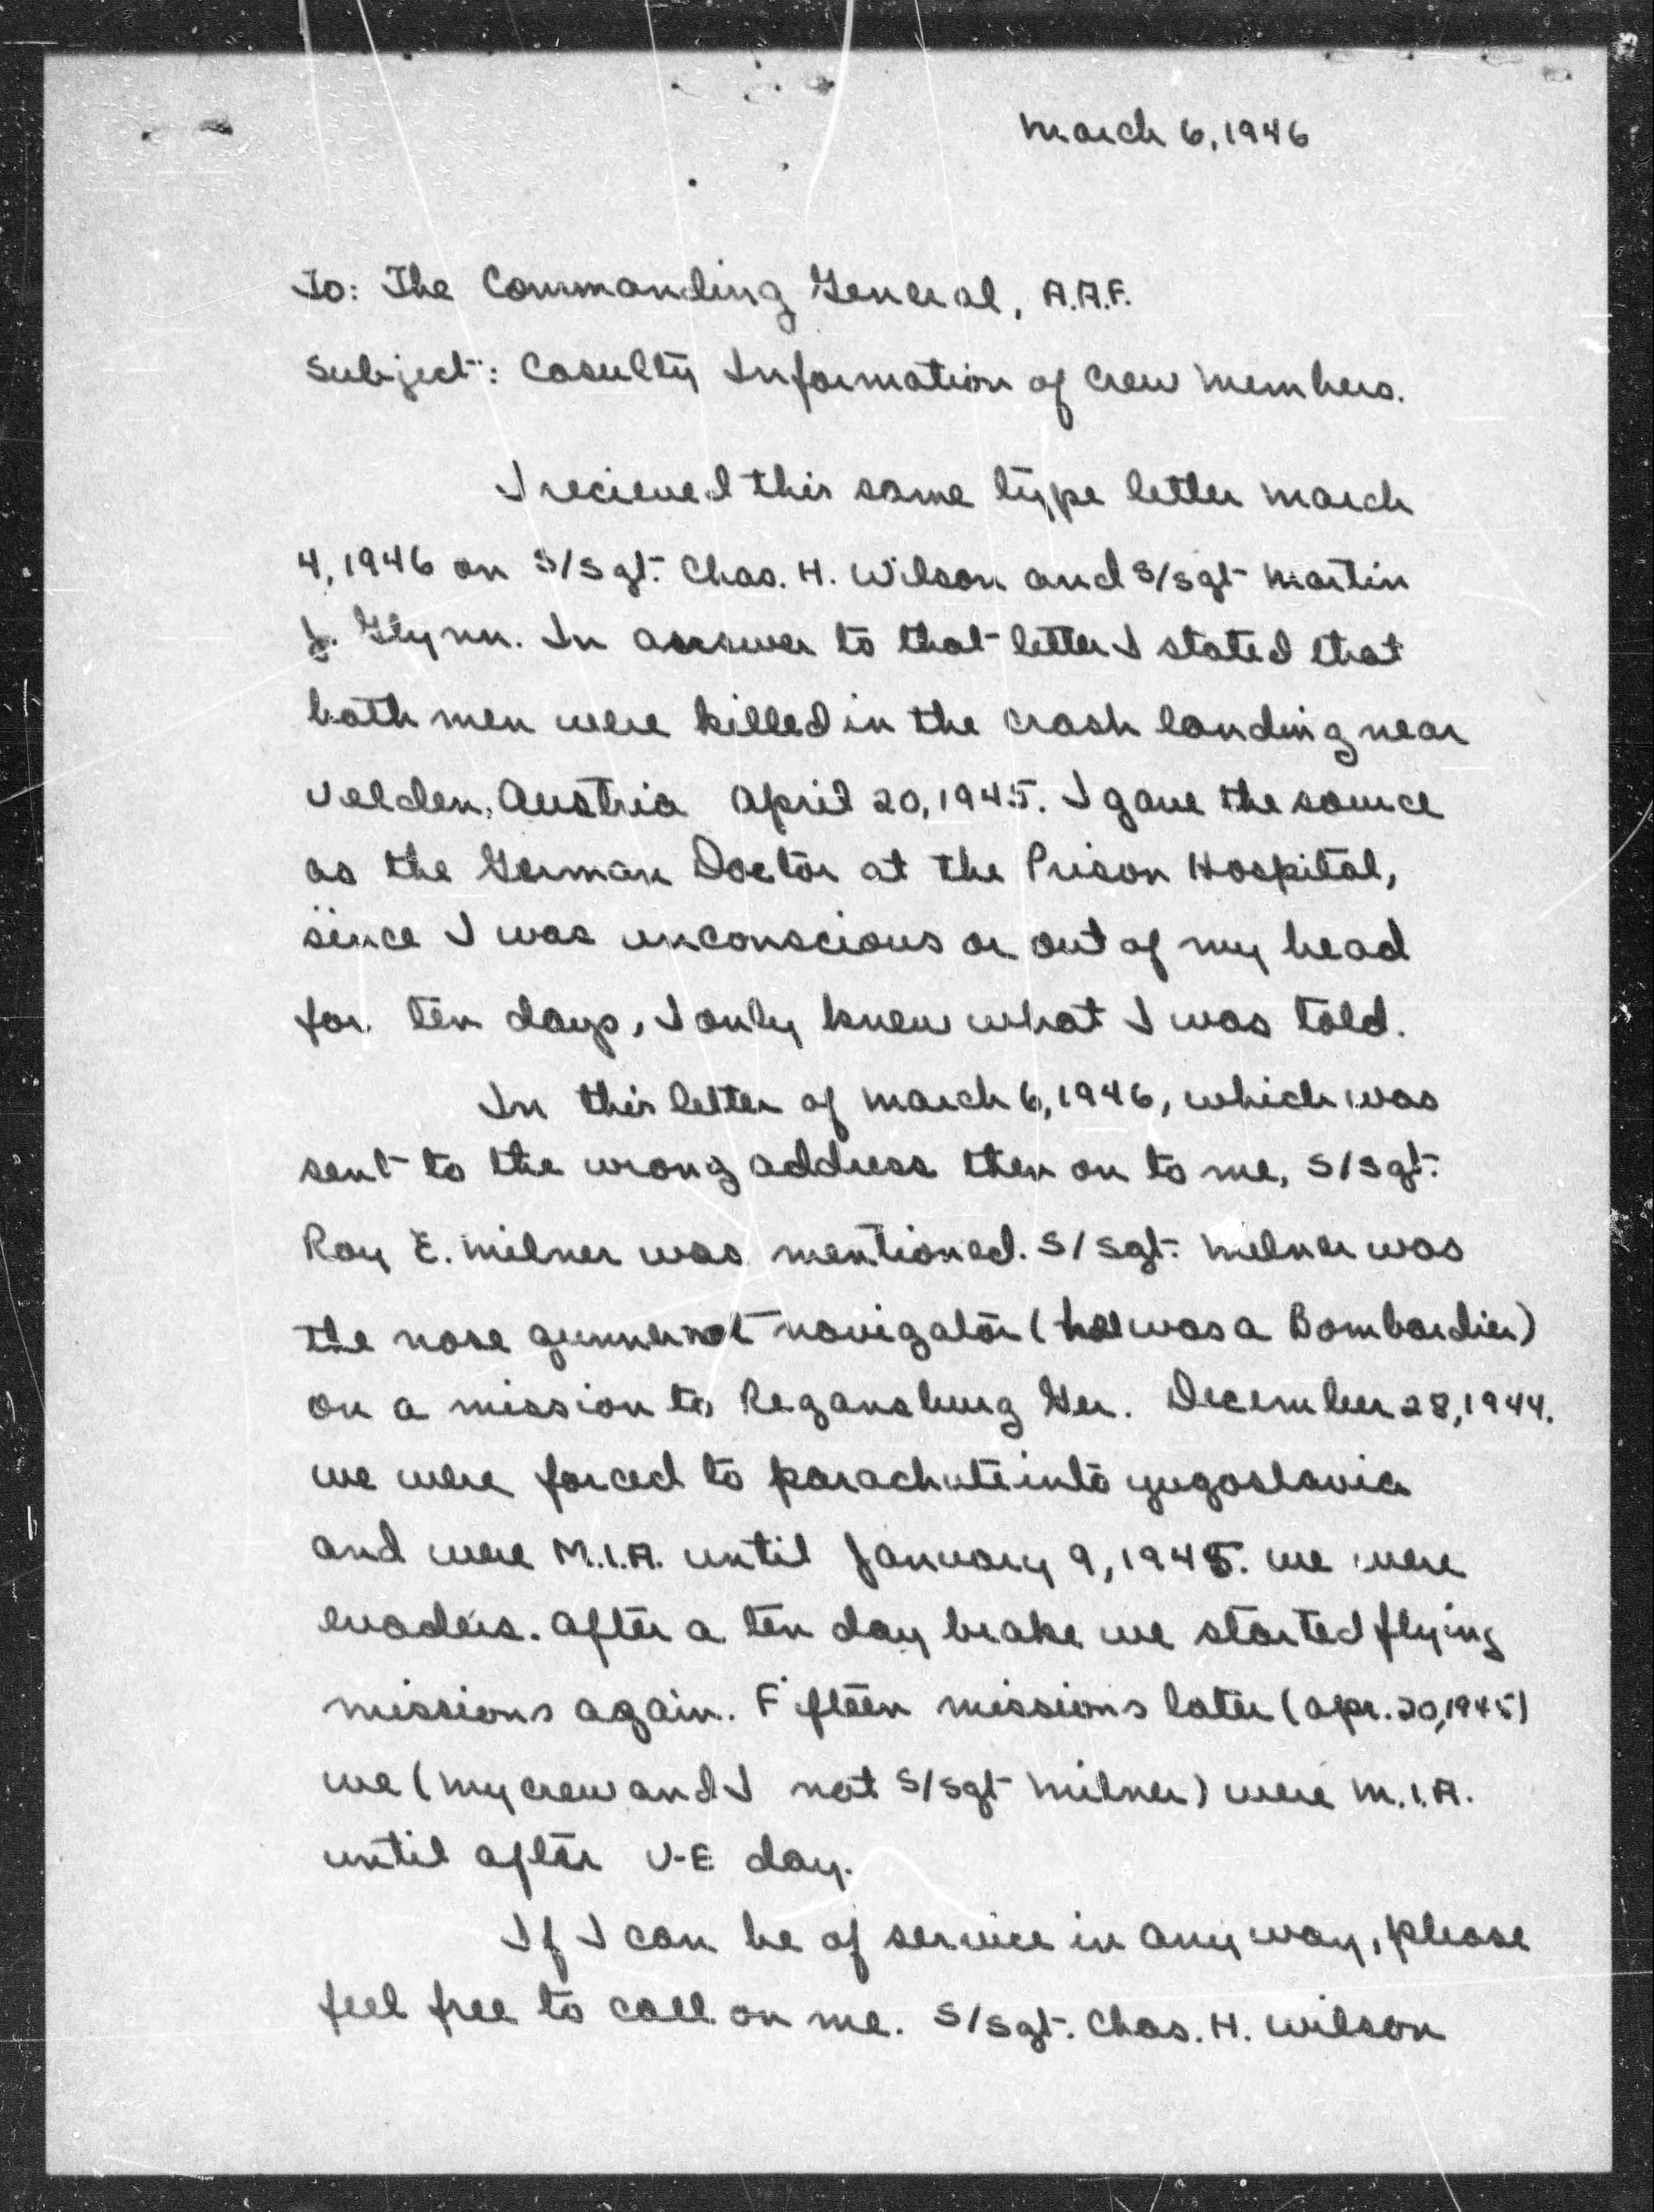 March 6, 1946
To: The Commanding General, A.A.F.
Subject: Casulty Information of Crew Members.
I recieved this same type letter March
4, 1946 on S/Sgt. Chas. H. Wilson and S/Sgt Martin
J. Glynn. In answer to that letter I stated that
both men were killed in the crash landing near
Velden, Austria April 20, 1945. I gave the source
as the German Doctor at the Prison Hospital,
since I was unconscious or out of my head
for ten days, I only knew what I was told.
In this letter of March 6, 1946, which was
sent to the wrong address then on to me, S/Sgt.
Roy E. Milner was mentioned. S/Sgt. Milner was
the nose gunner not navigator (he was a Bombardier)
on a mission to Regansburg Ger. December 28, 1944.
we were forced to parachute into yugoslavia
and were M.I.A. until January 9, 1945. we were
evaders. After a ten day brake we started flying
missions again. Fifteen missions later (Apr. 20, 1945)
we (my crew and I not S/Sgt Milner) were M.I.A.
until after V-E day.
If I can be of service in any way, please
feel free to call on me. S/Sgt. Chas. H. Wilson